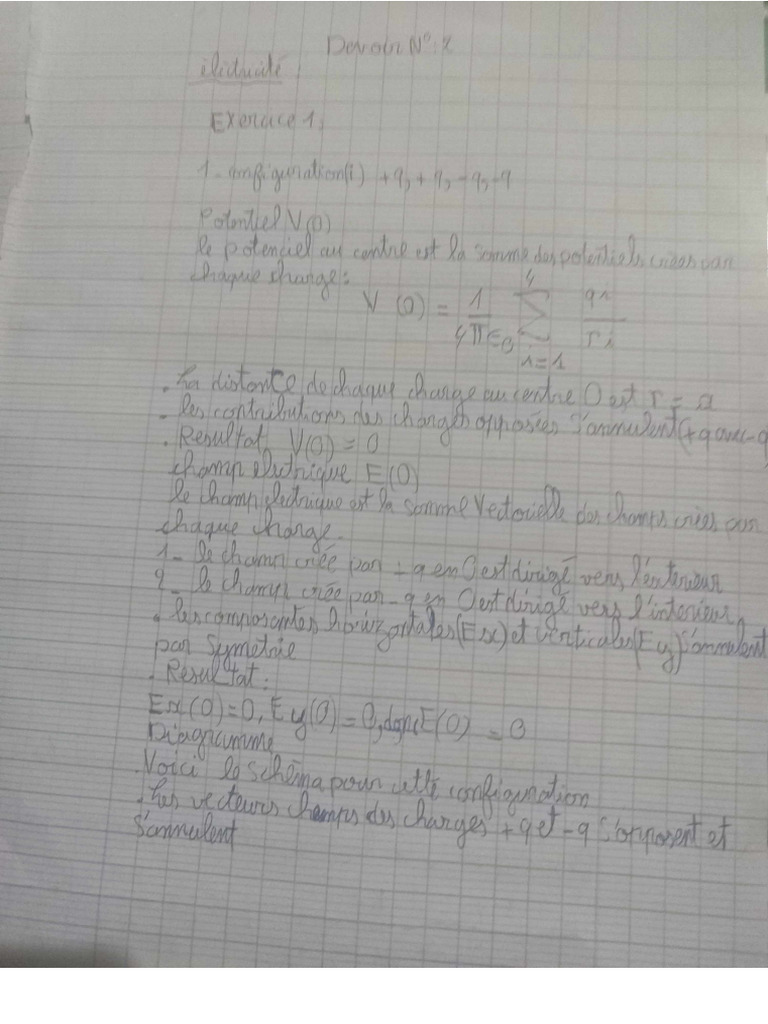 Devoir N°: 2
électricité :
Exercice 1,
1- configuration(i) +q, +q, -q, -q
Potentiel V(0)
le potenciel au centre est la somme des potentiels crées par
chaque charge:
V (0) = 1/4π∈0 4∑i=1 qi/ri
. La distance de chaque charge au centre O est r = a
- les contributions des charges opposées s'annulent(+q avec -q
. Resultat, V(0) = 0
champ electrique E(0)
le champ electrique est la somme Vectorielle des champs crées par
chaque charge.
1- le champ crée par +q en O est dirigé vers l'exterieur
2- le champ crée par -q en O est dirigé vers l'interieur,
. les composantes horizontales(Ex) et verticales(Ey)s'annulent
par symetrie
. Resultat:
Ex(0)=0, Ey(0)=0, donc E(0) = 0
Diagramme
.Voici le schéma pour cette configuration
.Les vecteurs champs des charges +q et -q s'opposent et
s'annulent